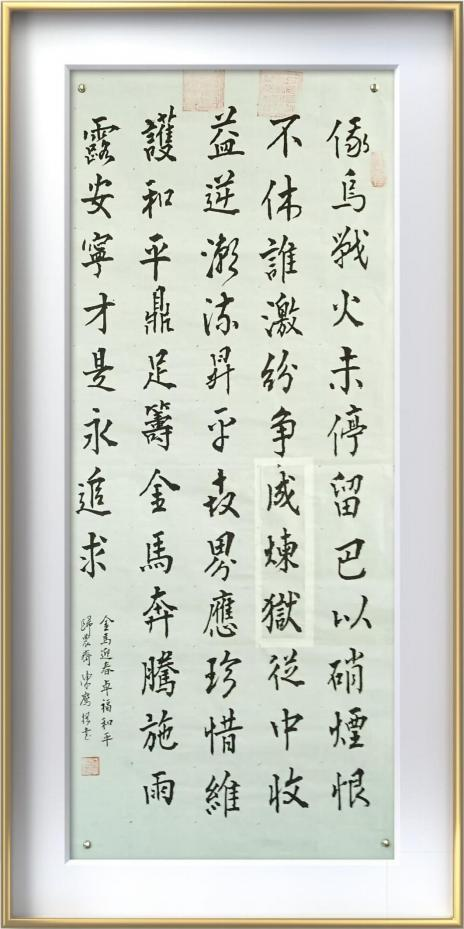 俄烏戰火未停留巴以硝煙恨
不休誰激紛爭成煉獄從中收
益逆潮流昇平界應珍惜維
護和平鼎足籌金馬奔騰施雨
露安寧才是永追求
金馬迎春卓福和平
歸農齋